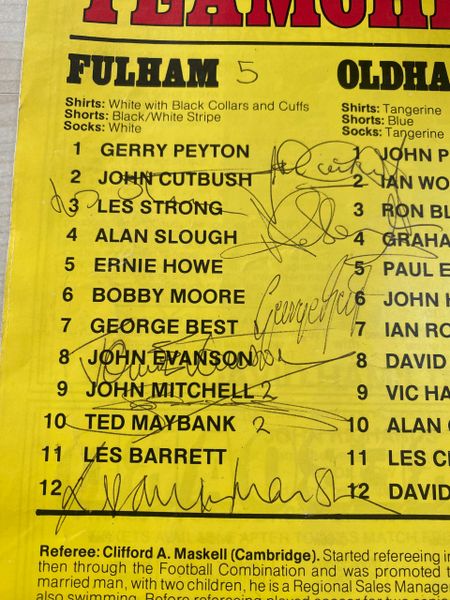 FULHAM 5
Shirts: White with Black Collars and Cuffs
Shorts: Black/White Stripe
Socks: White
1 GERRY PEYTON
2 JOHN CUTBUSH
3 LES STRONG
4 ALAN SLOUGH
5 ERNIE HOWE
6 BOBBY MOORE
7 GEORGE BEST
George Best
8 JOHN EVANSON
9 JOHN MITCHELL 2
10 TED MAYBANK 2
11 LES BARRETT
12
OLDHA
Shirts: Tangerine
Shorts: Blue
Socks: Tangerine
1 JOHN P
2 IAN WO
3 RON BL
4 GRAHA
5 PAUL E
6 JOHN H
7 IAN RO
8 DAVID
9 VIC HA
10 ALAN
11 LES C
12 DAVID
Referee: Clifford A. Maskell (Cambridge). Started refereeing in
then through the Football Combination and was promoted t
married man, with two children, he is a Regional Sales Manage
also swimming. Before refereeing played soccer for